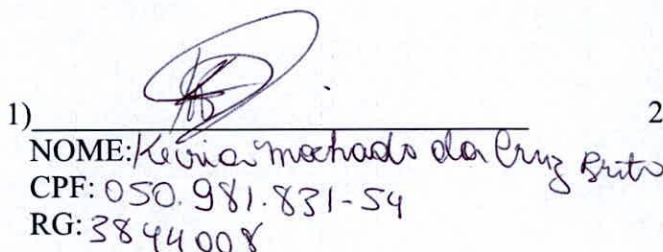 1) 2
NOME: Keiria Machado da Cruz Brito
CPF: 050.981.831-54
RG: 3844008